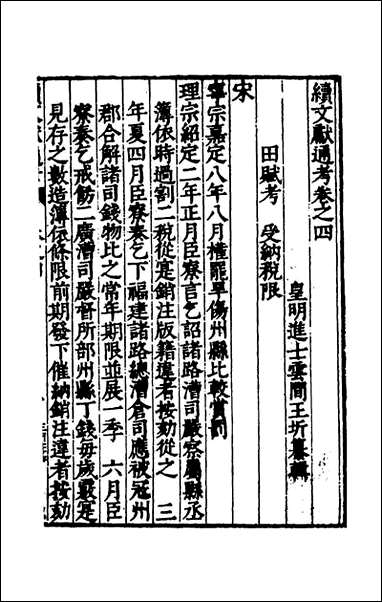 續文獻通考卷之四
皇明進士雲間王圻纂輯
田賦考　受納稅限
宋
寧宗嘉定八年八月權罷旱傷州縣比較賞罰
理宗紹定二年正月臣寮言乞詔諸路漕司嚴察屬縣丞
簿依時過割二稅從是銷注版籍違者按劾從之　三
年夏四月臣寮奏乞下福建諸路總漕倉司應被冦州
郡合解諸司錢物比之常年期限並展一季　六月臣
寮奏乞戒飭二廣漕司嚴督所部州縣丁錢每歲嚴是
見存之數造簿依條限前期發下催納銷注違者按劾